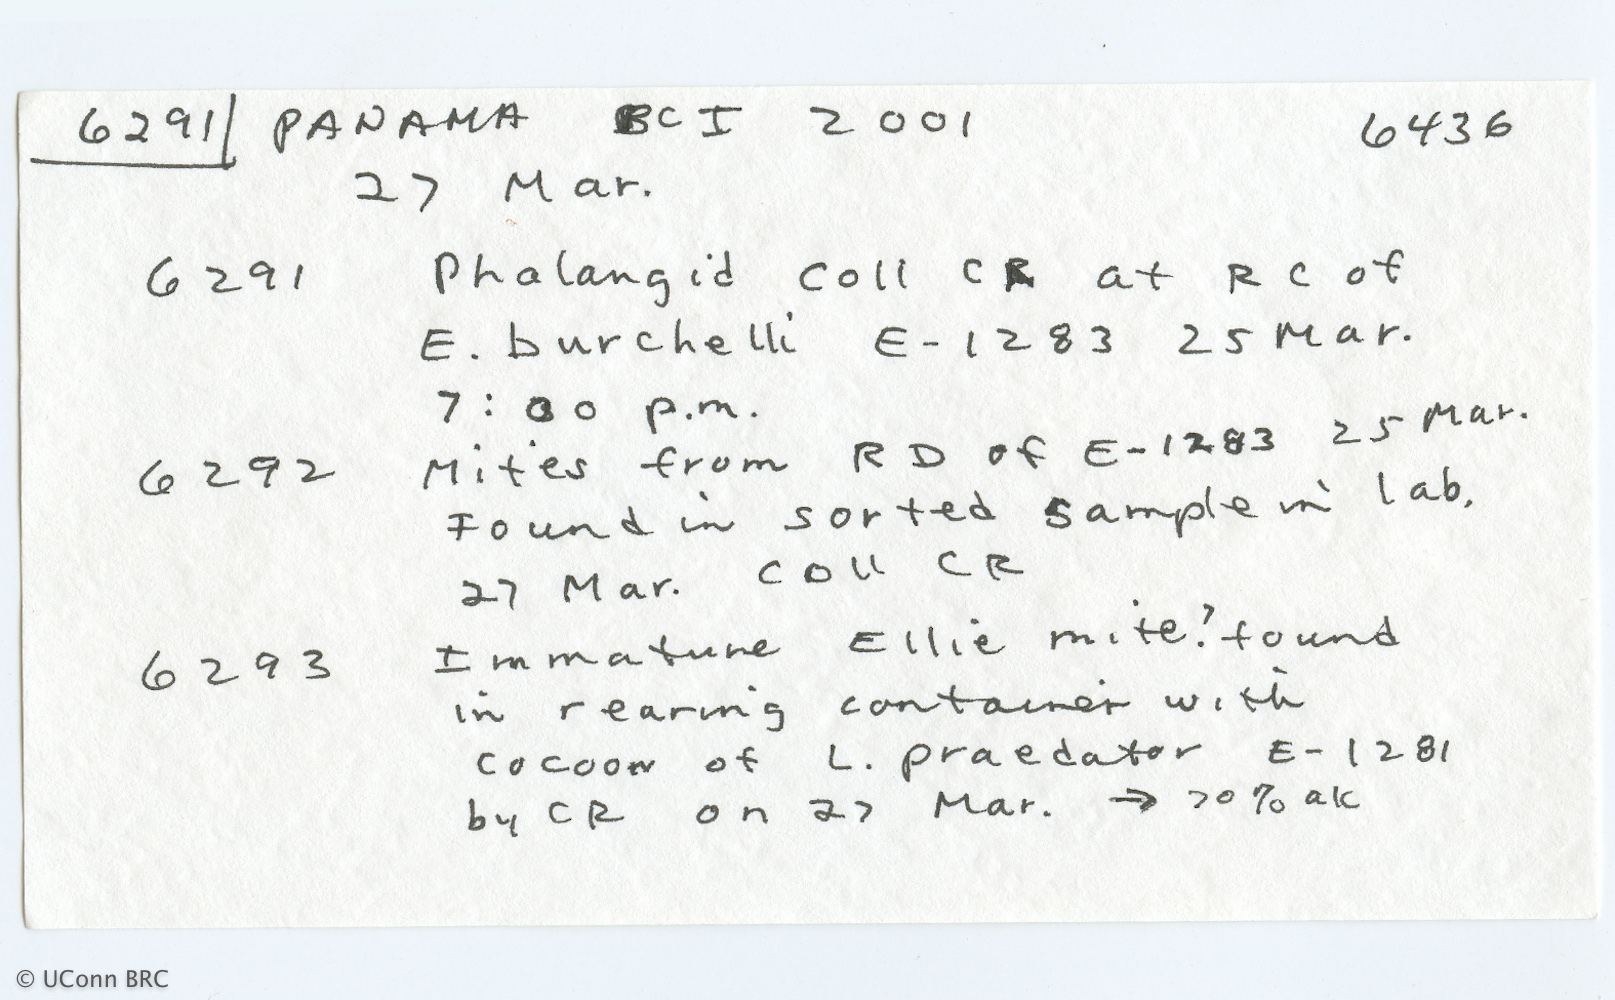 6291 PANAMA BCI 2001 6436
27 Mar.
6291 Phalangid coll CR at RC of
E. burchelli E-1283 25 Mar.
7:00 p.m.
6292 Mites from RD of E-1283 25 Mar.
Found in sorted sample in lab.
27 Mar. Coll CR
6293 Immature Ellie mite? found
in rearing container with
cocoon of L. praedator E-1281
by CR on 27 Mar. → 70% alc
© UConn BRC